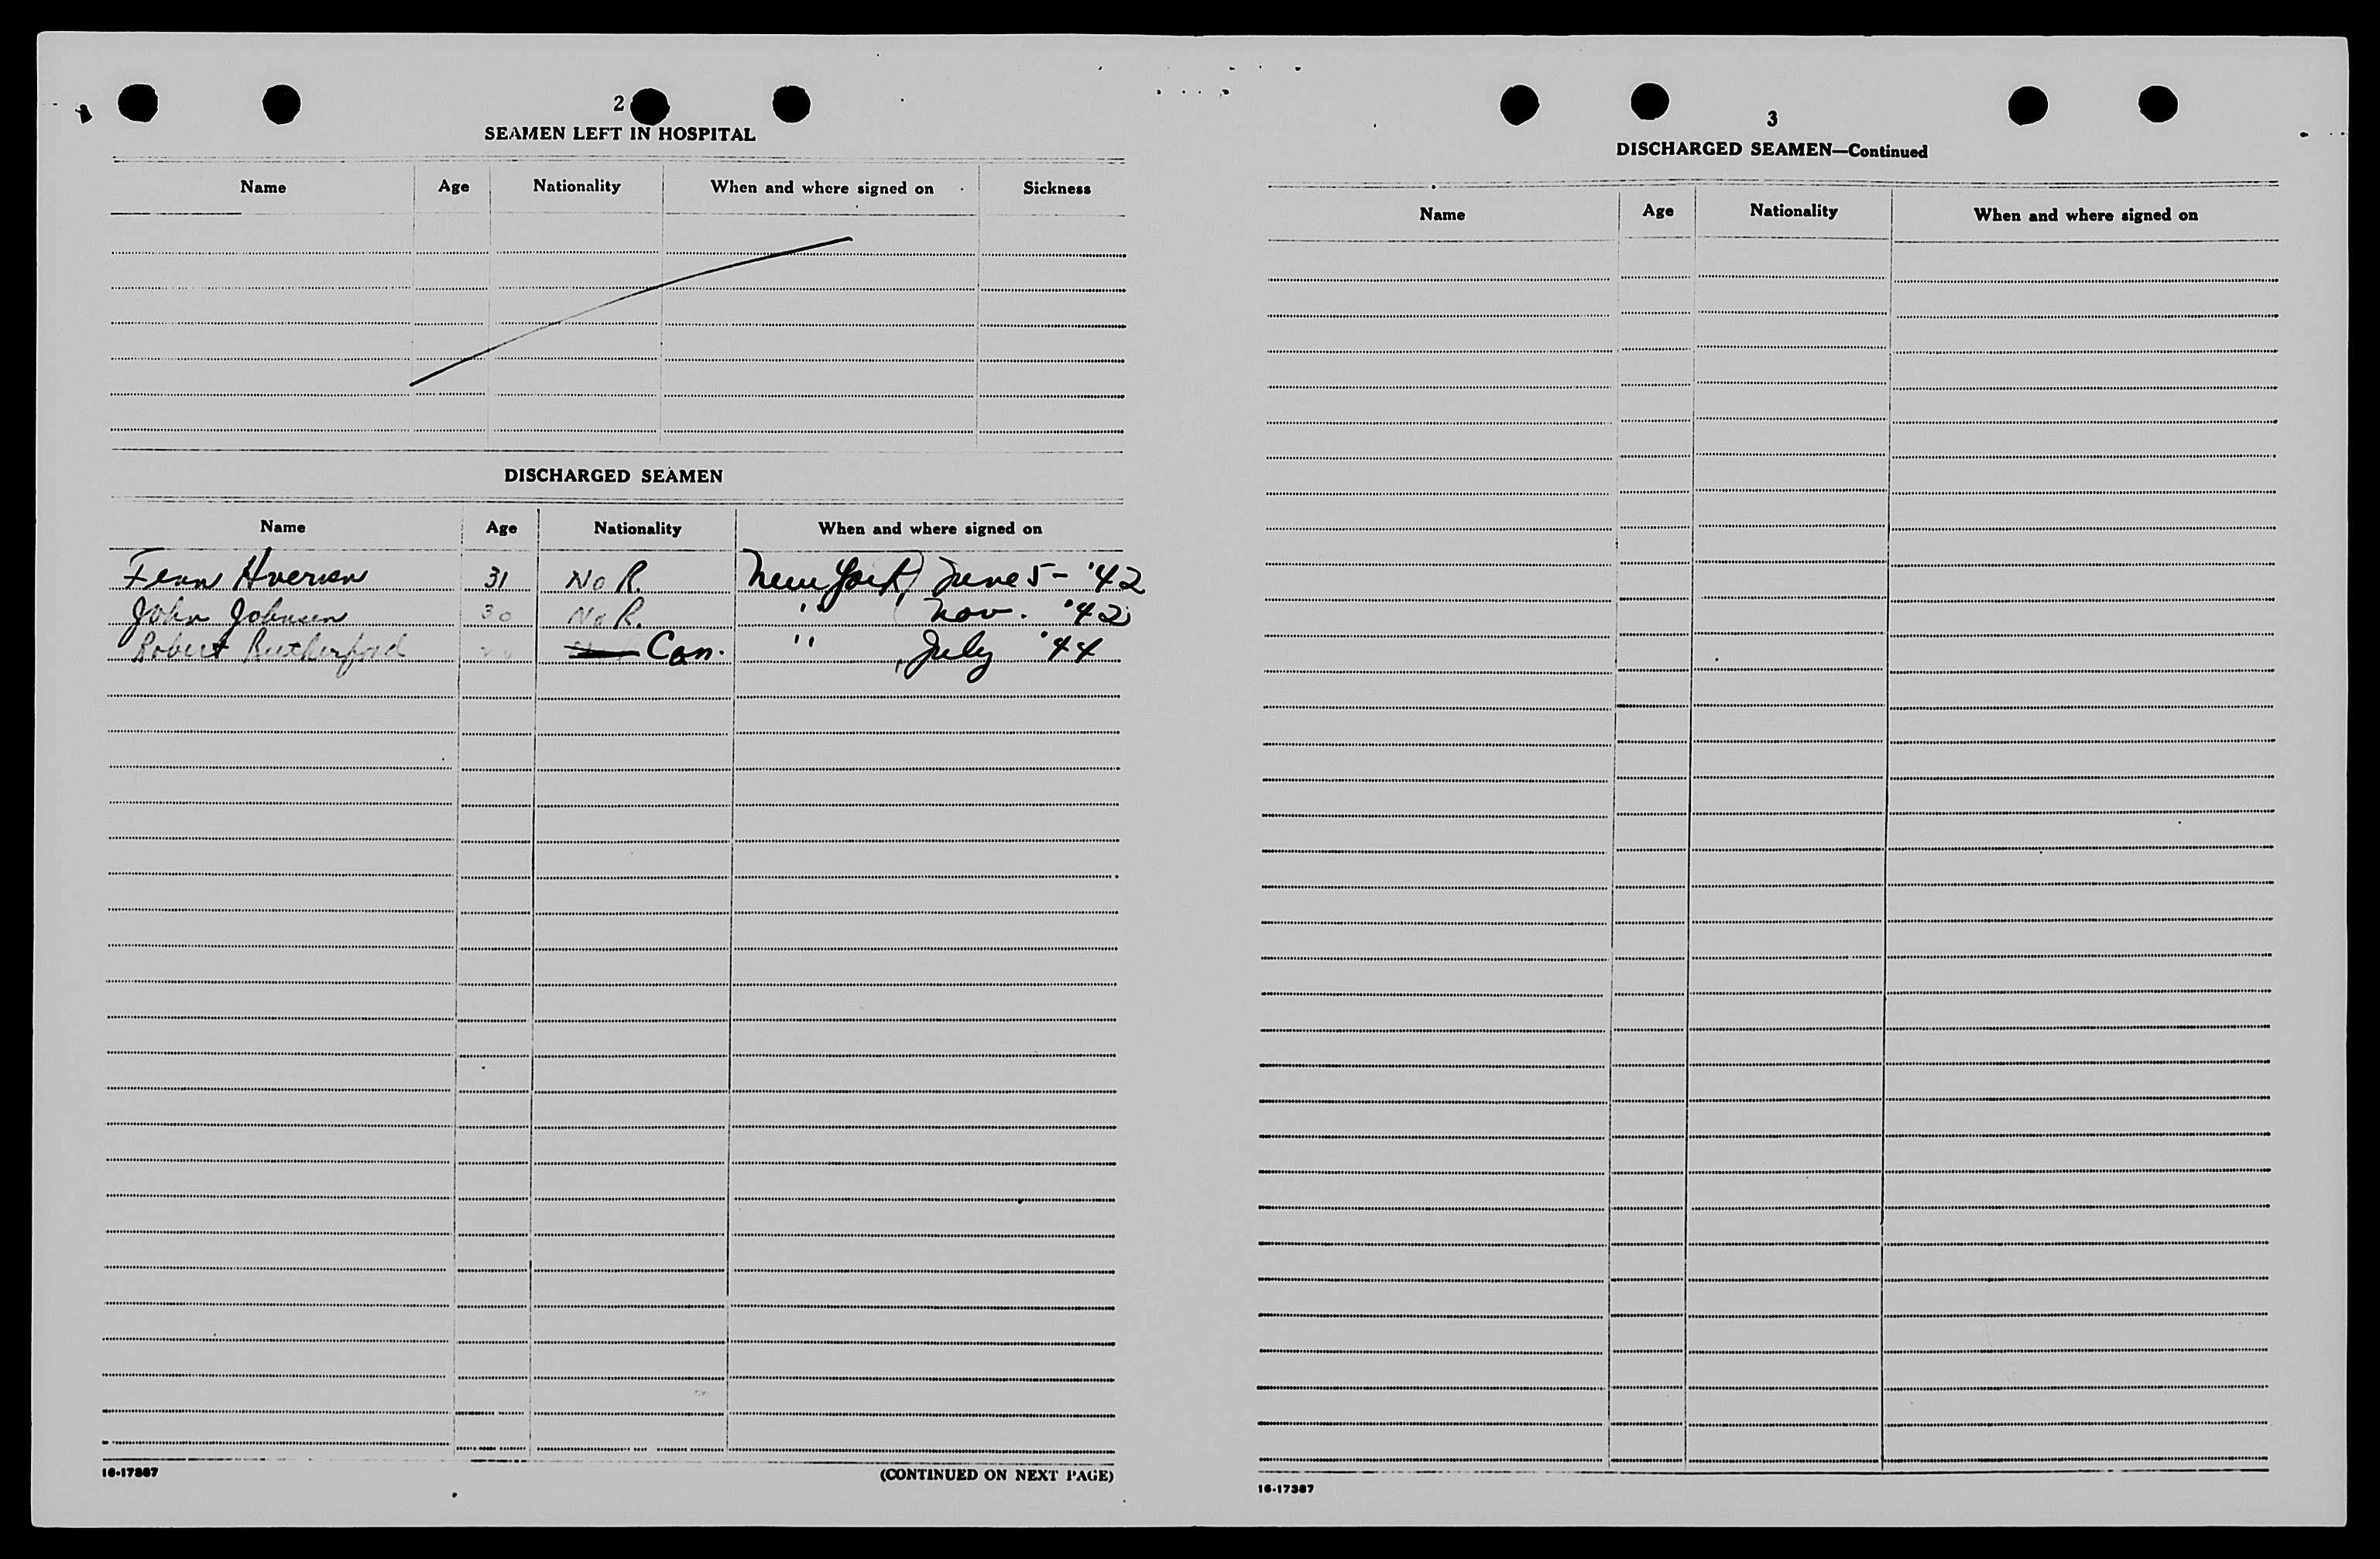 2
SEAMEN LEFT IN HOSPITAL
Name Age Nationality When and where signed on Sickness
DISCHARGED SEAMEN
Name Age Nationality When and where signed on
31 NoR. New York, June 5 - '42
John Johnsen 30 NoR. " , Nov. '42
Robert Rutherford Can. " , July '44
16-17387
(CONTINUED ON NEXT PAGE)
3
DISCHARGED SEAMEN—Continued
Name Age Nationality When and where signed on
16-17387